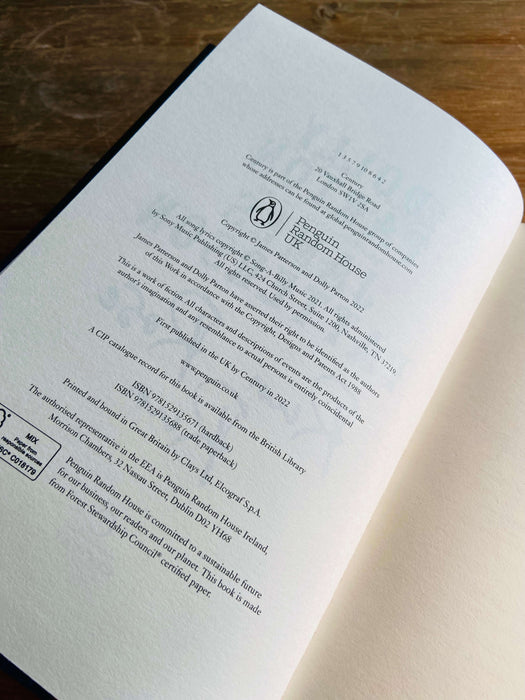 1 3 5 7 9 10 8 6 4 2
Century
20 Vauxhall Bridge Road
London SW1V 2SA
Century is part of the Penguin Random House group of companies
whose addresses can be found at global.penguinrandomhouse.com
Penguin
Random House
UK
Copyright © James Patterson and Dolly Parton 2022
All song lyrics copyright © Song-A-Billy Music 2021. All rights administered
by Sony Music Publishing (US) LLC, 424 Church Street, Suite 1200, Nashville, TN 37219.
All rights reserved. Used by permission.
James Patterson and Dolly Parton have asserted their right to be identified as the authors
of this Work in accordance with the Copyright, Designs and Patents Act 1988
This is a work of fiction. All characters and descriptions of events are the products of the
author's imagination and any resemblance to actual persons is entirely coincidental
First published in the UK by Century in 2022
www.penguin.co.uk
A CIP catalogue record for this book is available from the British Library
ISBN 9781529135671 (hardback)
ISBN 9781529135688 (trade paperback)
Printed and bound in Great Britain by Clays Ltd, Elcograf S.p.A.
The authorised representative in the EEA is Penguin Random House Ireland,
Morrison Chambers, 32 Nassau Street, Dublin D02 YH68
MIX
Paper from
responsible sources
C018179
Penguin Random House is committed to a sustainable future
for our business, our readers and our planet. This book is made
from Forest Stewardship Council® certified paper.